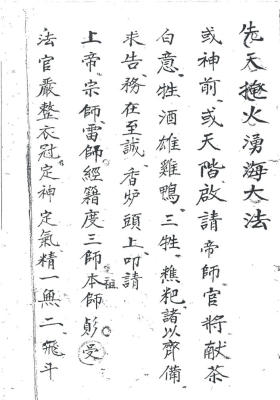 先天掩火湧海大法
或神前或天階啟請帝師官將献茶
白意牲酒雄雞鴨三牲樵粑諸以齊備
求告務在至誠香炉頭上叩請
上帝宗師雷師經籍度三師本師
祖
法官嚴整衣冠定神定氣精一無二飛斗